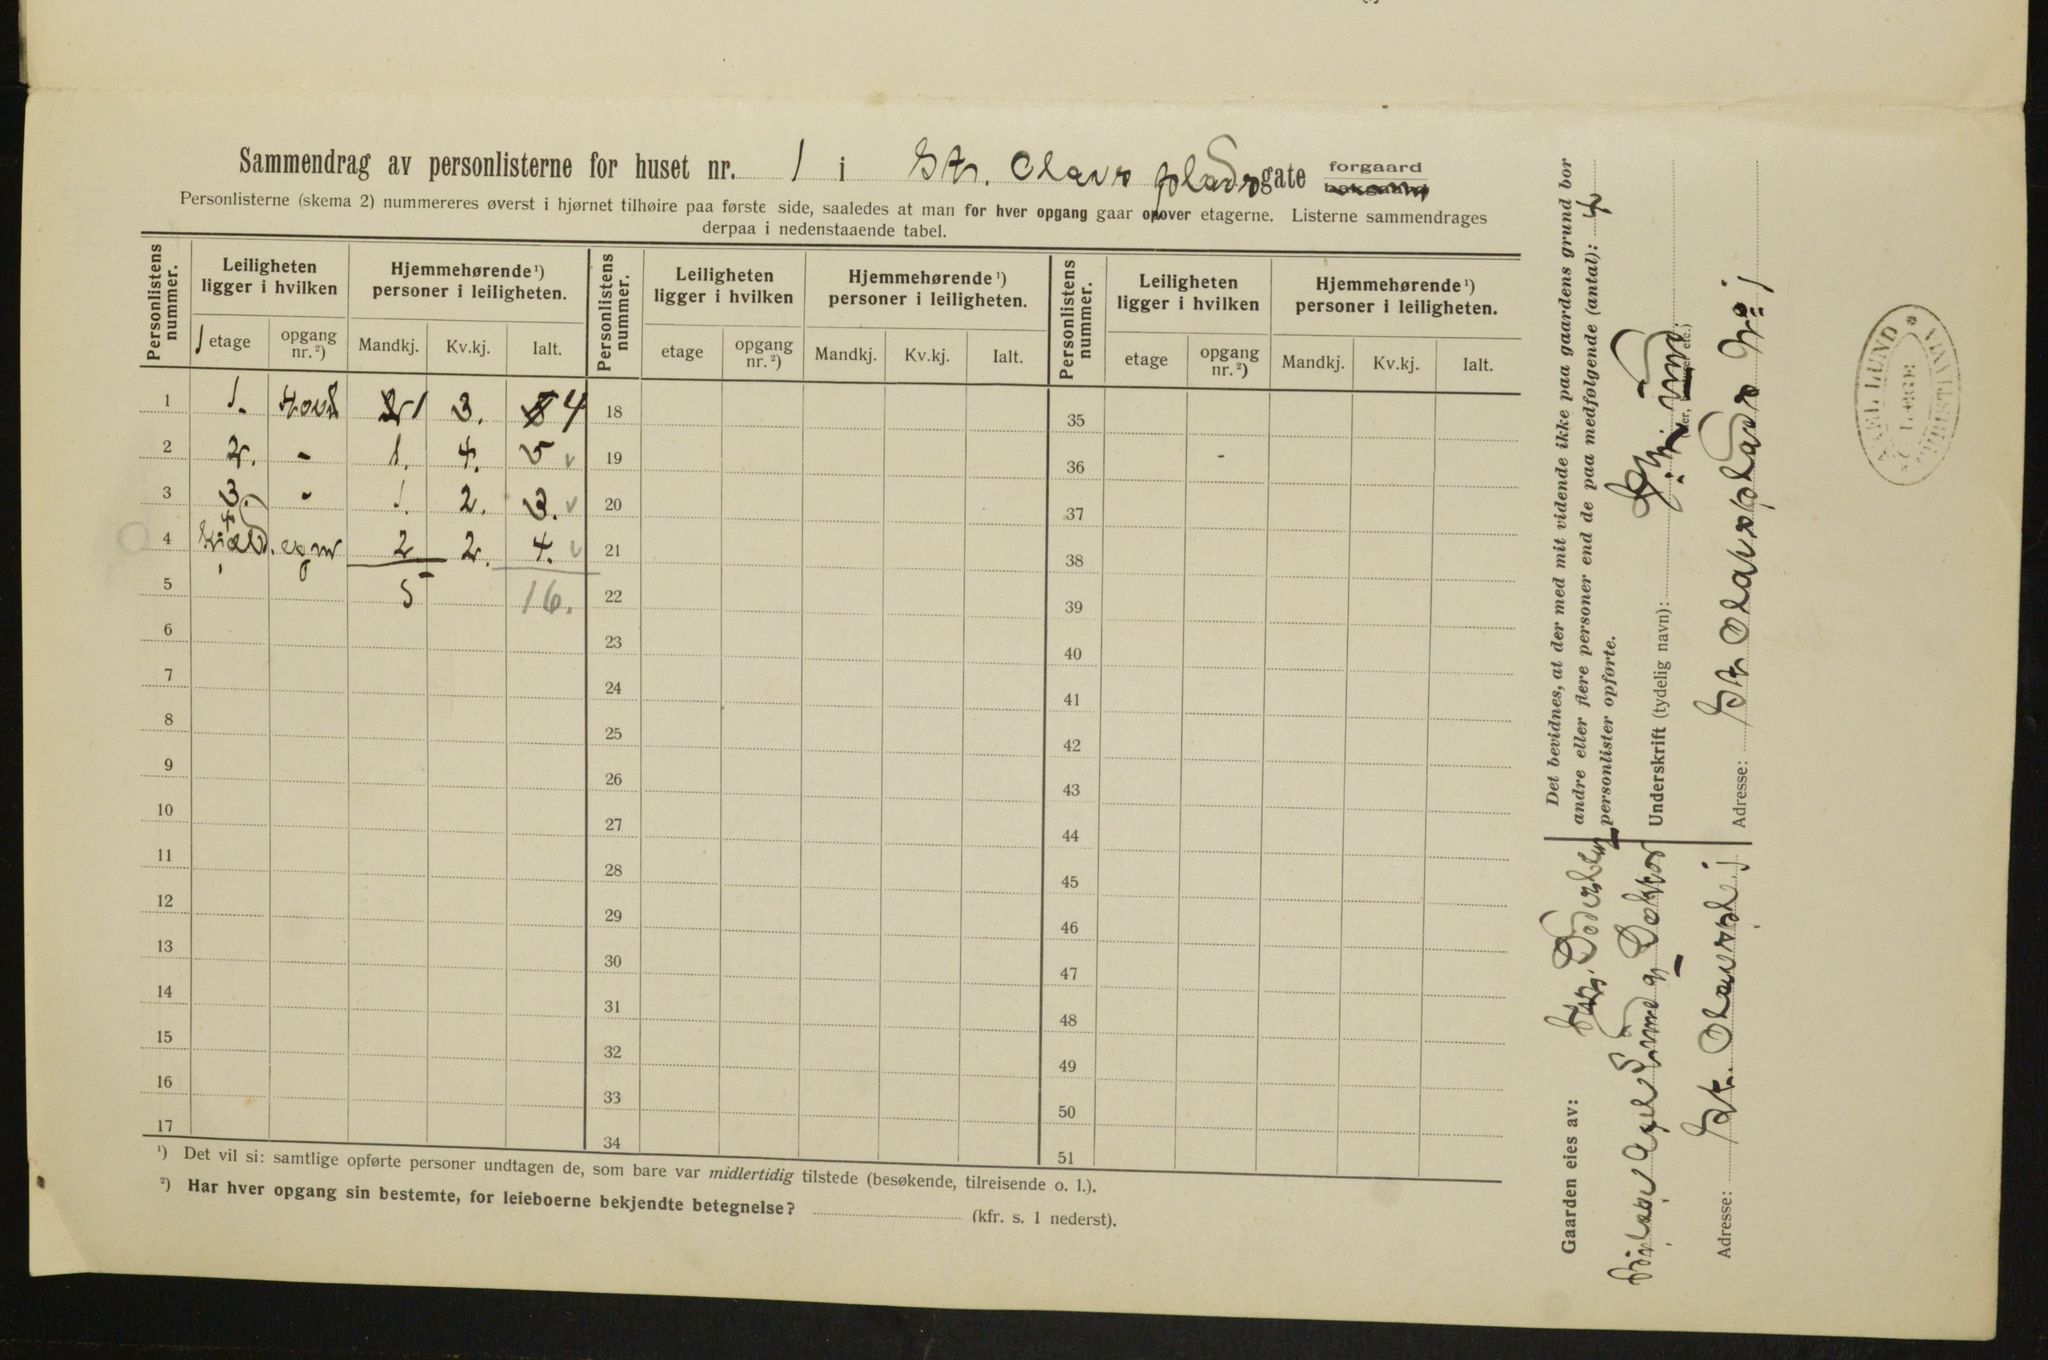 Sammendrag av personlisterne for huset nr. 1 i St. Olavs plads gate forgaard
Personlisterne (skema 2) nummereres øverst i hjørnet tilhøire paa første side, saaledes at man for hver opgang gaar opover etagerne. Listerne sammendrages
derpaa i nedenstaaende tabel.
Personlistens nummer. Leiligheten ligger i hvilken Hjemmehørende ¹) personer i leiligheten. Personlistens nummer. Leiligheten ligger i hvilken Hjemmehørende ¹) personer i leiligheten. Personlistens nummer. Leiligheten ligger i hvilken Hjemmehørende ¹) personer i leiligheten.
etage opgang nr. ²) Mandkj. Kv.kj. Ialt. etage opgang nr. ²) Mandkj. Kv.kj. Ialt. etage opgang nr. ²) Mandkj. Kv.kj. Ialt.
1 1. Hovd 1 3. 4 18 35
2 2. - 1. 4. 5 19 36 -
3 3. - 1. 2. 3. 20 37
4 Kjæld. 2 2. 4. 21 38
5 5 16. 22 39
6 23 40
7 24 41
8 25 42
9 26 43
10 27 44
11 28 45
12 29 46
13 30 47
14 31 48
15 32 49
16 33 50
17 34 51
¹) Det vil si: samtlige opførte personer undtagen de, som bare var midlertidig tilstede (besøkende, tilreisende o. l.).
²) Har hver opgang sin bestemte, for leieboerne bekjendte betegnelse? (kfr. s. 1 nederst).
Det bevidnes, at der med mit vidende ikke paa gaardens grund bor
andre eller flere personer end de paa medfølgende (antal): 4
personlister opførte.
Underskrift (tydelig navn): Lund
Adresse: St Olavsplads No 1
Gaarden eies av:
Axel Lund og
Adresse: St. Olavspl. 1
AXEL LUND
LÆGE
CHRISTIANIA